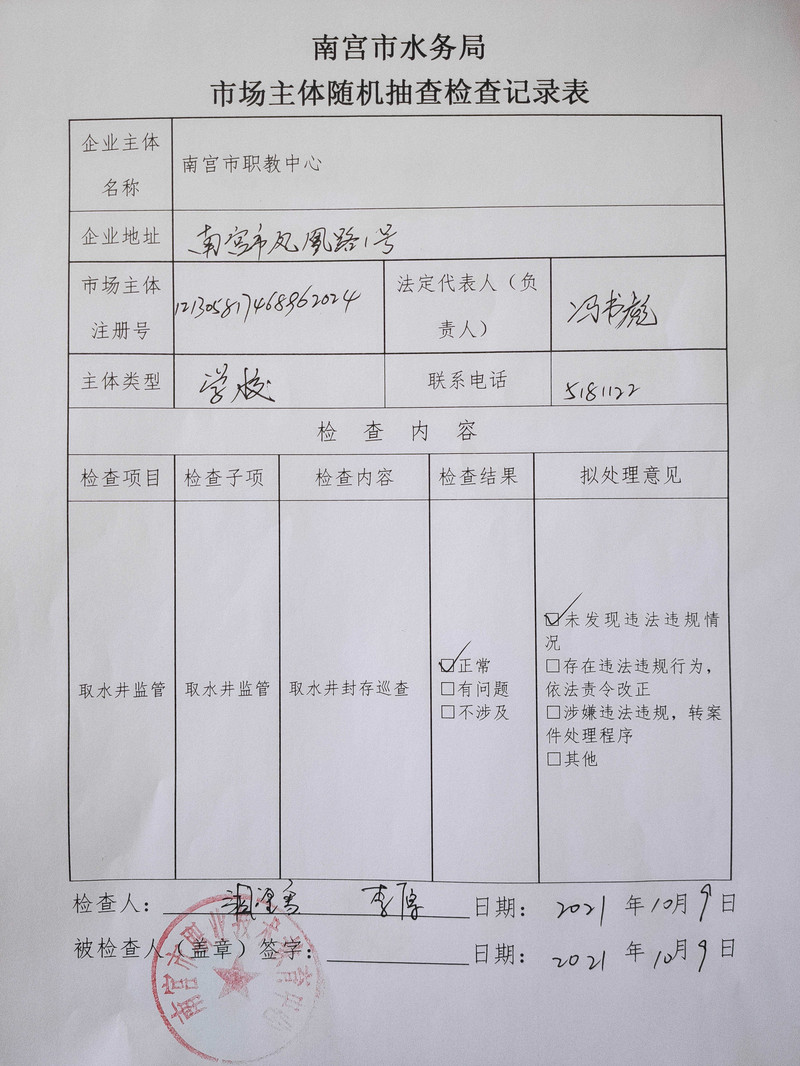 南宫市水务局
市场主体随机抽查检查记录表
企业主体名称
南宫市职教中心
企业地址
南宫市凤凰路1号
市场主体注册号
121305817468962024
法定代表人（负责人）
冯书彪
主体类型
学校
联系电话
5181122
检 查 内 容
检查项目 检查子项 检查内容 检查结果 拟处理意见
取水井监管 取水井监管 取水井封存巡查
☑正常
□有问题
□不涉及
☑未发现违法违规情
况
□存在违法违规行为，
依法责令改正
□涉嫌违法违规，转案
件处理程序
□其他
检查人： 日期： 2021 年 10月 9 日
被检查人（盖章）签字： 日期： 2021 年 10月 9 日
南宫市职业技术教育中心